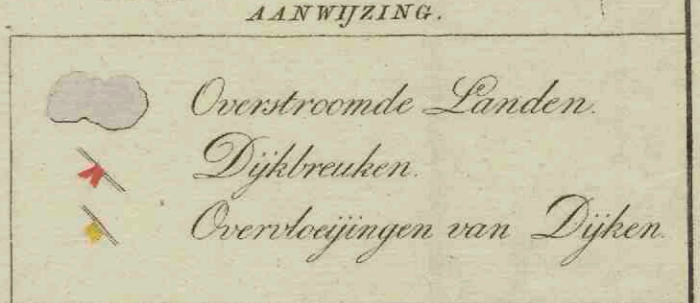 AANWIJZING.
Overstroomde Landen.
Dijkbreuken.
Overvloeijingen van Dijken.